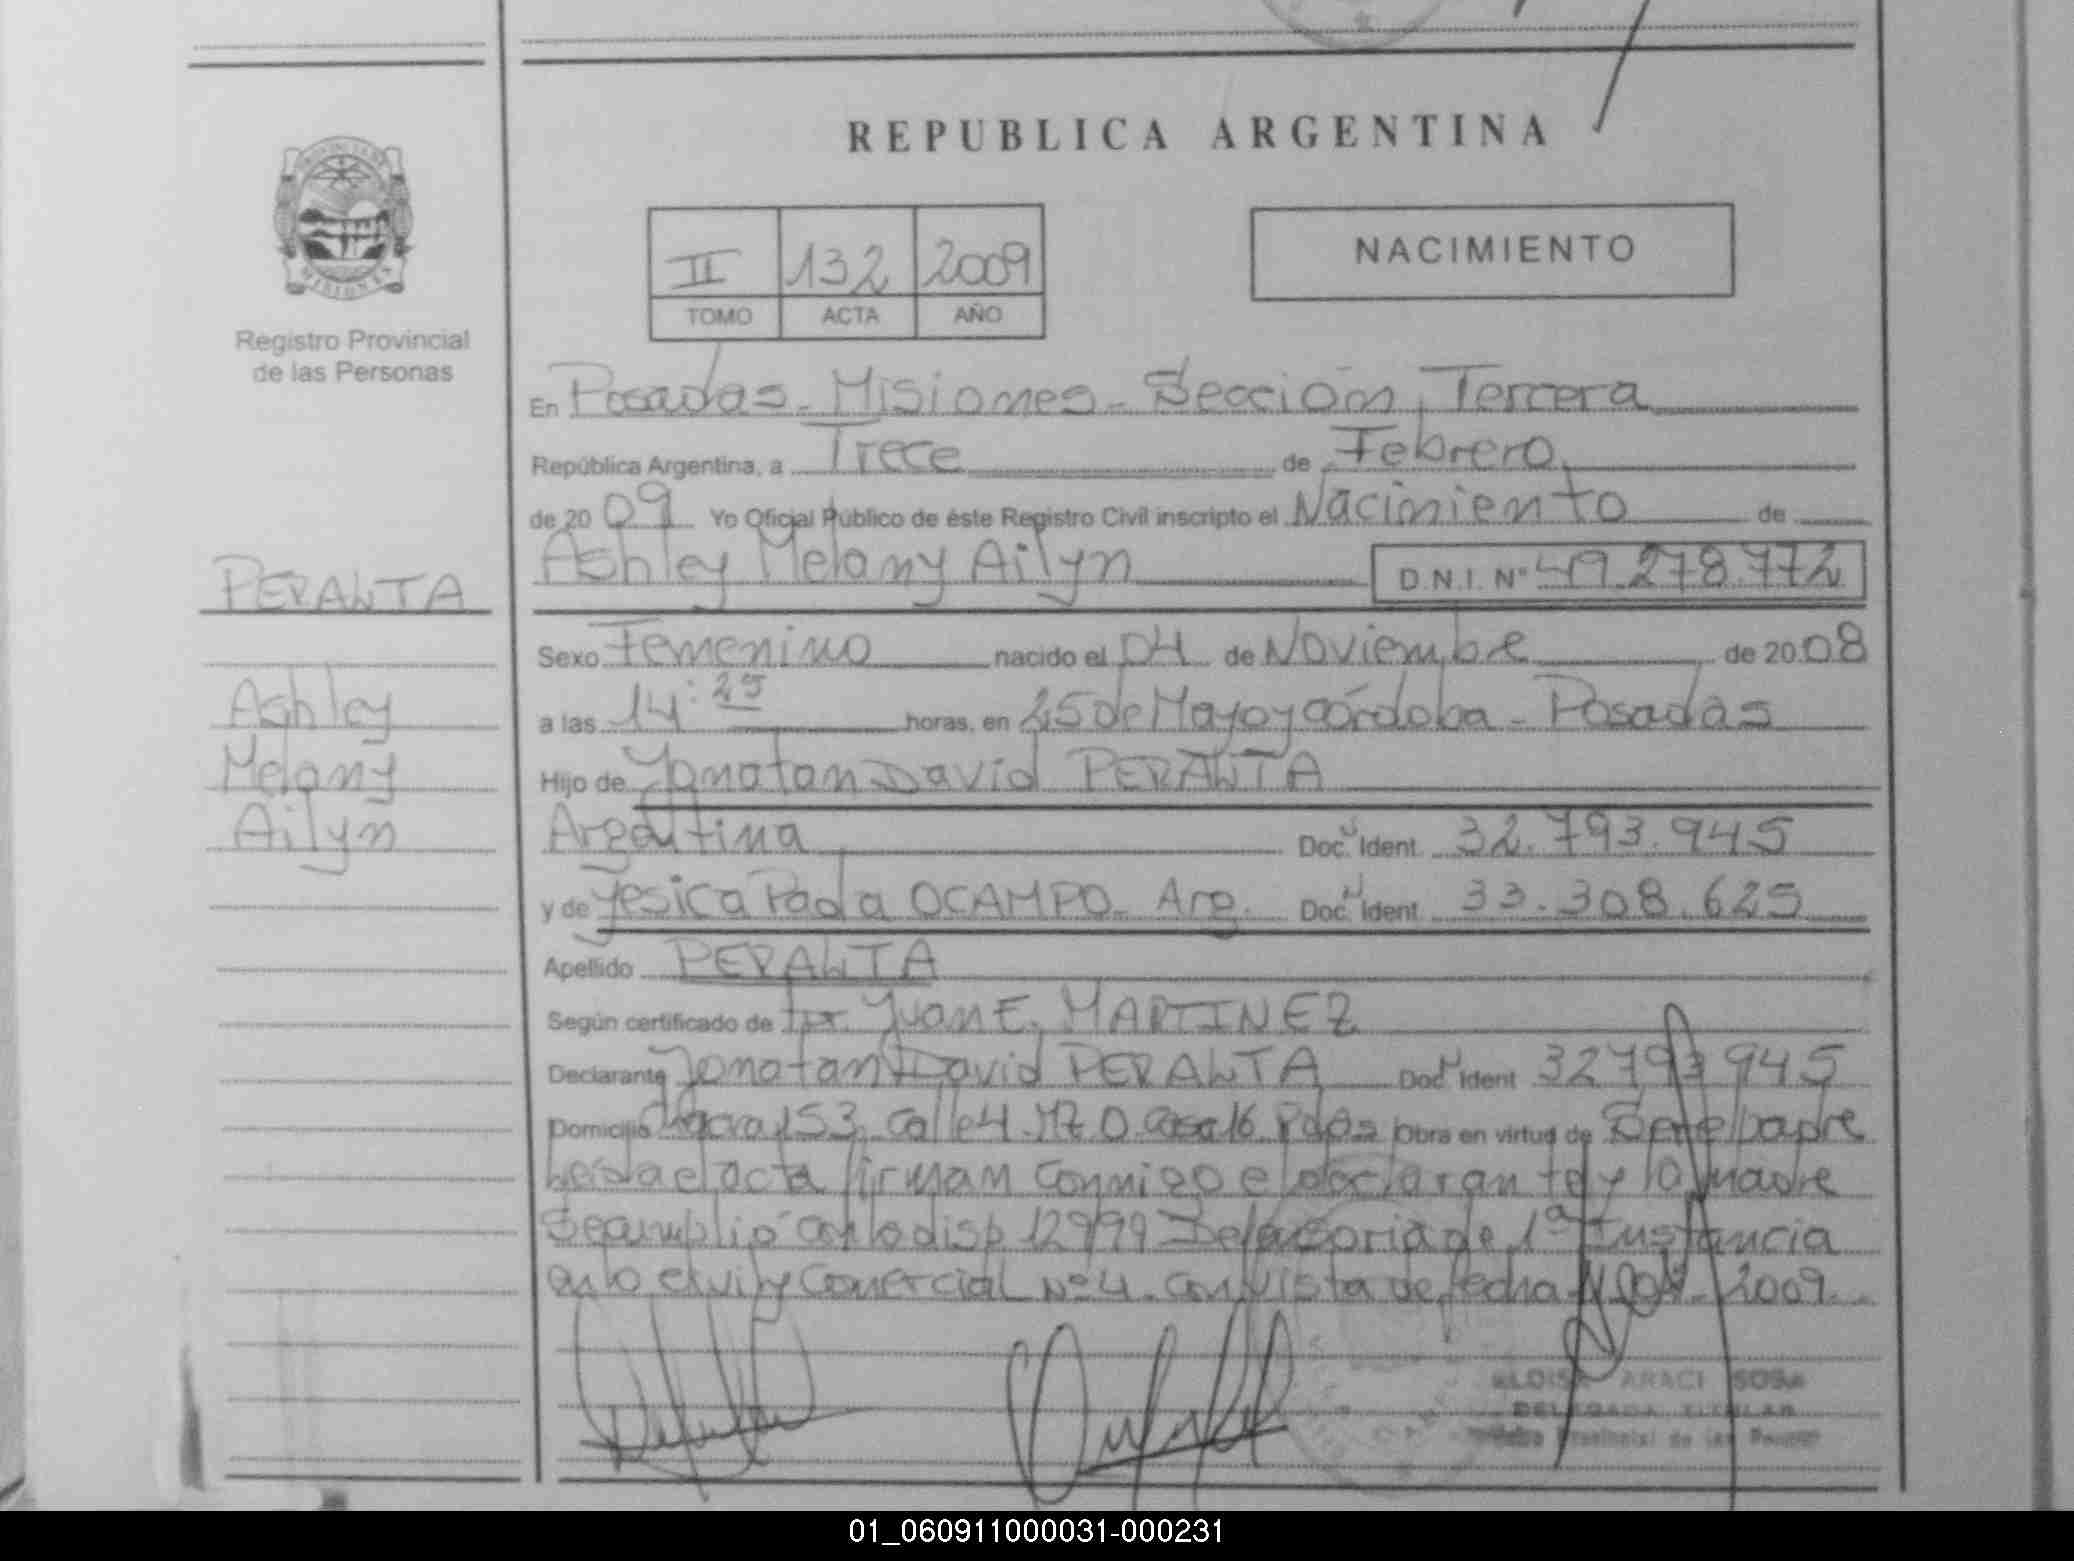 REPUBLICA ARGENTINA
PROVINCIA DE
MISIONES
Registro Provincial
de las Personas
II 132 2009
TOMO ACTA AÑO
NACIMIENTO
En Posadas - Misiones - Sección Tercera
República Argentina, a Trece de Febrero
de 2009 Yo Oficial Público de éste Registro Civil inscripto el Nacimiento de
Ashley Melany Ailyn D.N.I. Nº 49.278.772
PERALTA
Ashley
Melany
Ailyn
Sexo Femenino nacido el 04 de Noviembre de 2008
a las 14:25 horas, en 25 de Mayo y Córdoba - Posadas
Hijo de Jonatan David PERALTA
Argentina Doc. Ident. 32.793.945
y de Yesica Paola OCAMPO - Arg. Doc. Ident. 33.308.625
Apellido PERALTA
Según certificado de Juan E. MARTINEZ
Declarante Jonatan David PERALTA Doc. Ident 32793945
Domicilio Chacra 153 calle 4 Mz D casa 16 Pdas Obra en virtud de Ser el padre
Leída el acta firman conmigo el declarante y la madre
Se cumplió con lo disp 12999 Defensoria de 1ª Instancia
en lo civil y Comercial Nº 4 - con vista de fecha 2009
ELOISA ARACI SOSA
DELEGADA TITULAR
Provincial de las
01_060911000031-000231